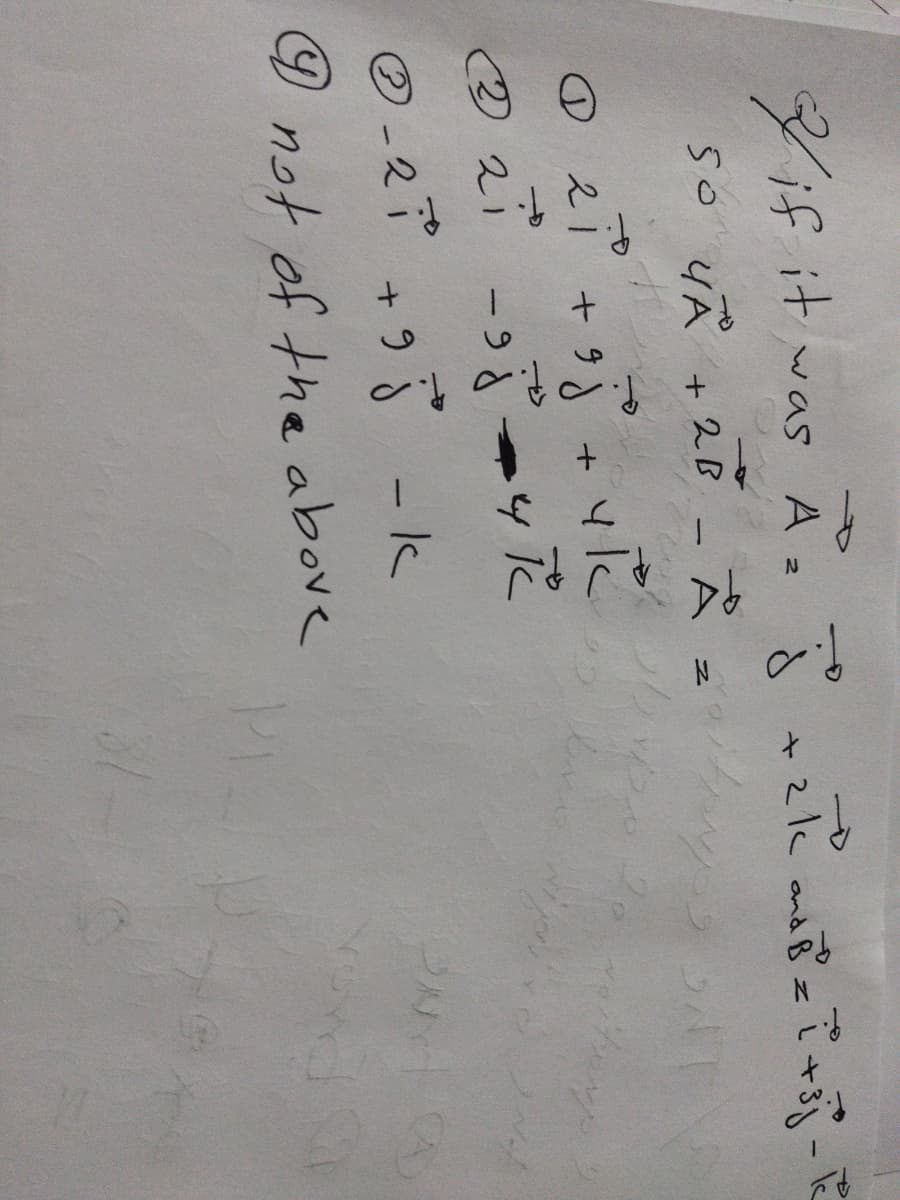 Q/ if it was A⃗ = j⃗ + 2k⃗ and B⃗ = i⃗ + 3j⃗ - k⃗
so 4A⃗ + 2B⃗ - A⃗ =
① 2i⃗ + 9j⃗ + 4k⃗
② 2i⃗ - 9j⃗ 4k⃗
③ -2i⃗ + 9j⃗ - k
④ not of the above